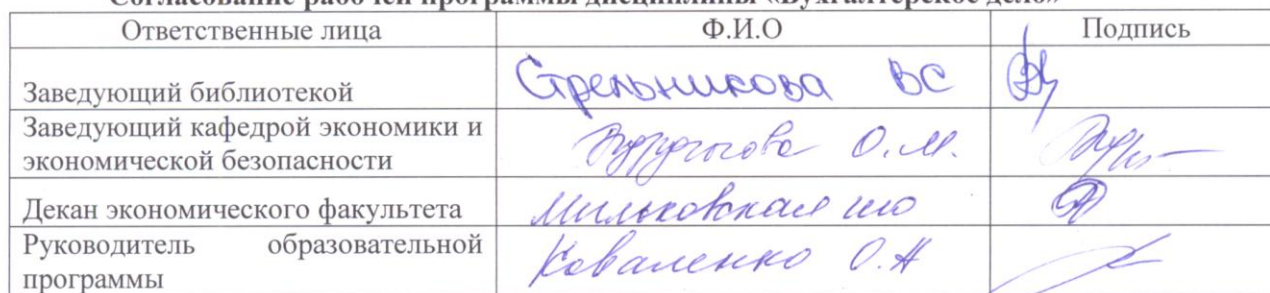 Согласование рабочей программы дисциплины «Бухгалтерское дело»
Ответственные лица Ф.И.О Подпись
Заведующий библиотекой Стрельникова ВС
Заведующий кафедрой экономики и
экономической безопасности О.М.
Декан экономического факультета
Руководитель образовательной
программы Коваленко О.А